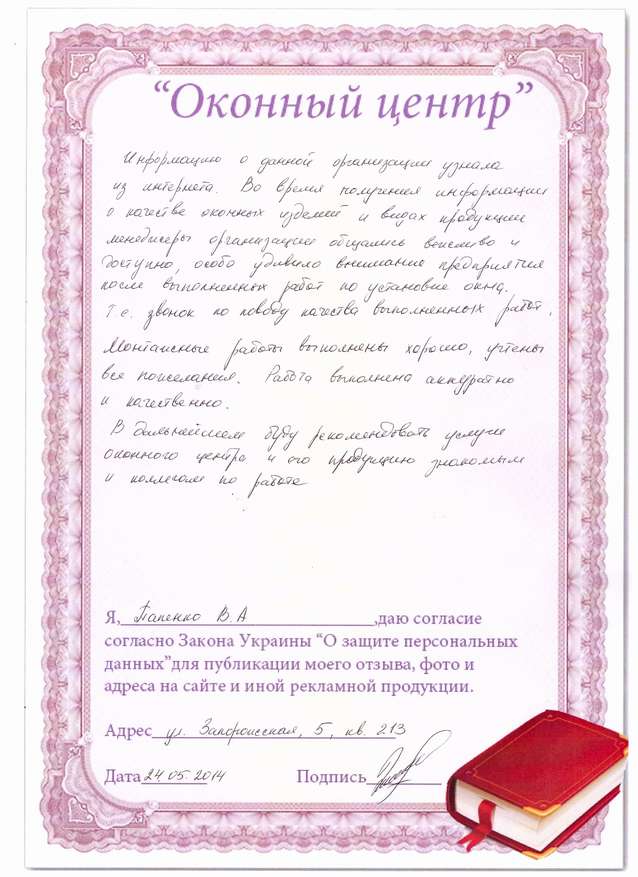 “Оконный центр”
Информацию о данной организации узнала
из интернета. Во время получения информации
о качестве оконных изделей и видах продукции
менеджеры организации общались вежливо и
доступно, особо удивило внимание предприятия
после выполненных работ по установке окна.
Т.е. звонок по поводу качества выполненных работ.
Монтажные работы выполнены хорошо, учтены
все пожелания. Работа выполнена аккуратно
и качественно.
В дальнейшем буду рекомендовать услуги
оконного центра и его продукцию знакомым
и коллегам по работе
Я, Папенко В.А ,даю согласие
согласно Закона Украины “О защите персональных
данных”для публикации моего отзыва, фото и
адреса на сайте и иной рекламной продукции.
Адрес ул. Запорожская, 5, кв. 213
Дата 24.05.2014 Подпись